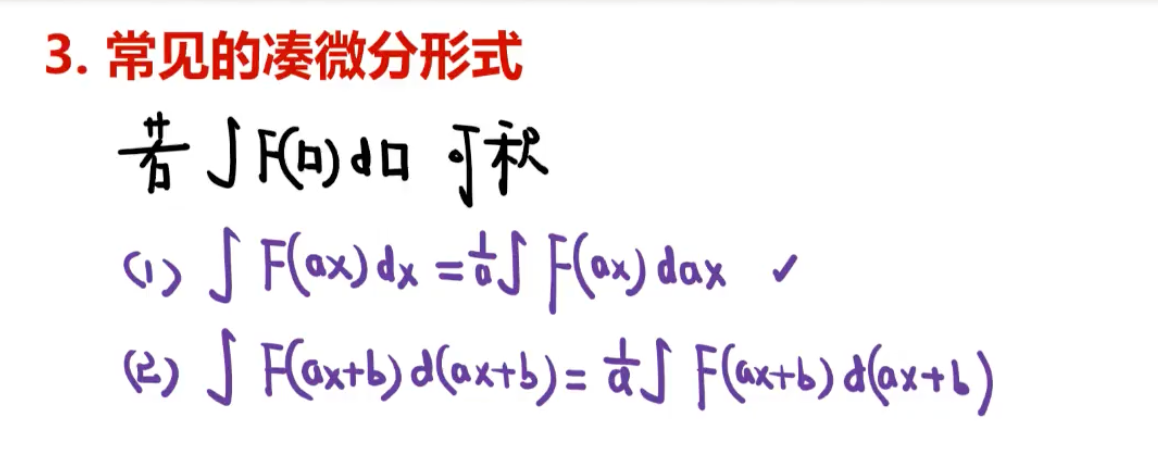 3. 常见的凑微分形式
若 ∫F(口)d口 可积
(1) ∫F(ax)dx = 1/a ∫F(ax)dax ✓
(2) ∫F(ax+b)d(ax+b) = 1/a ∫F(ax+b)d(ax+b)